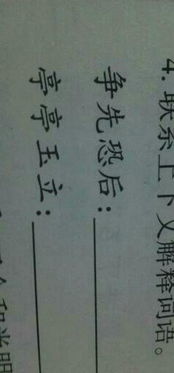 4. 联系上下文解释词语。
争先恐后：
亭亭玉立：